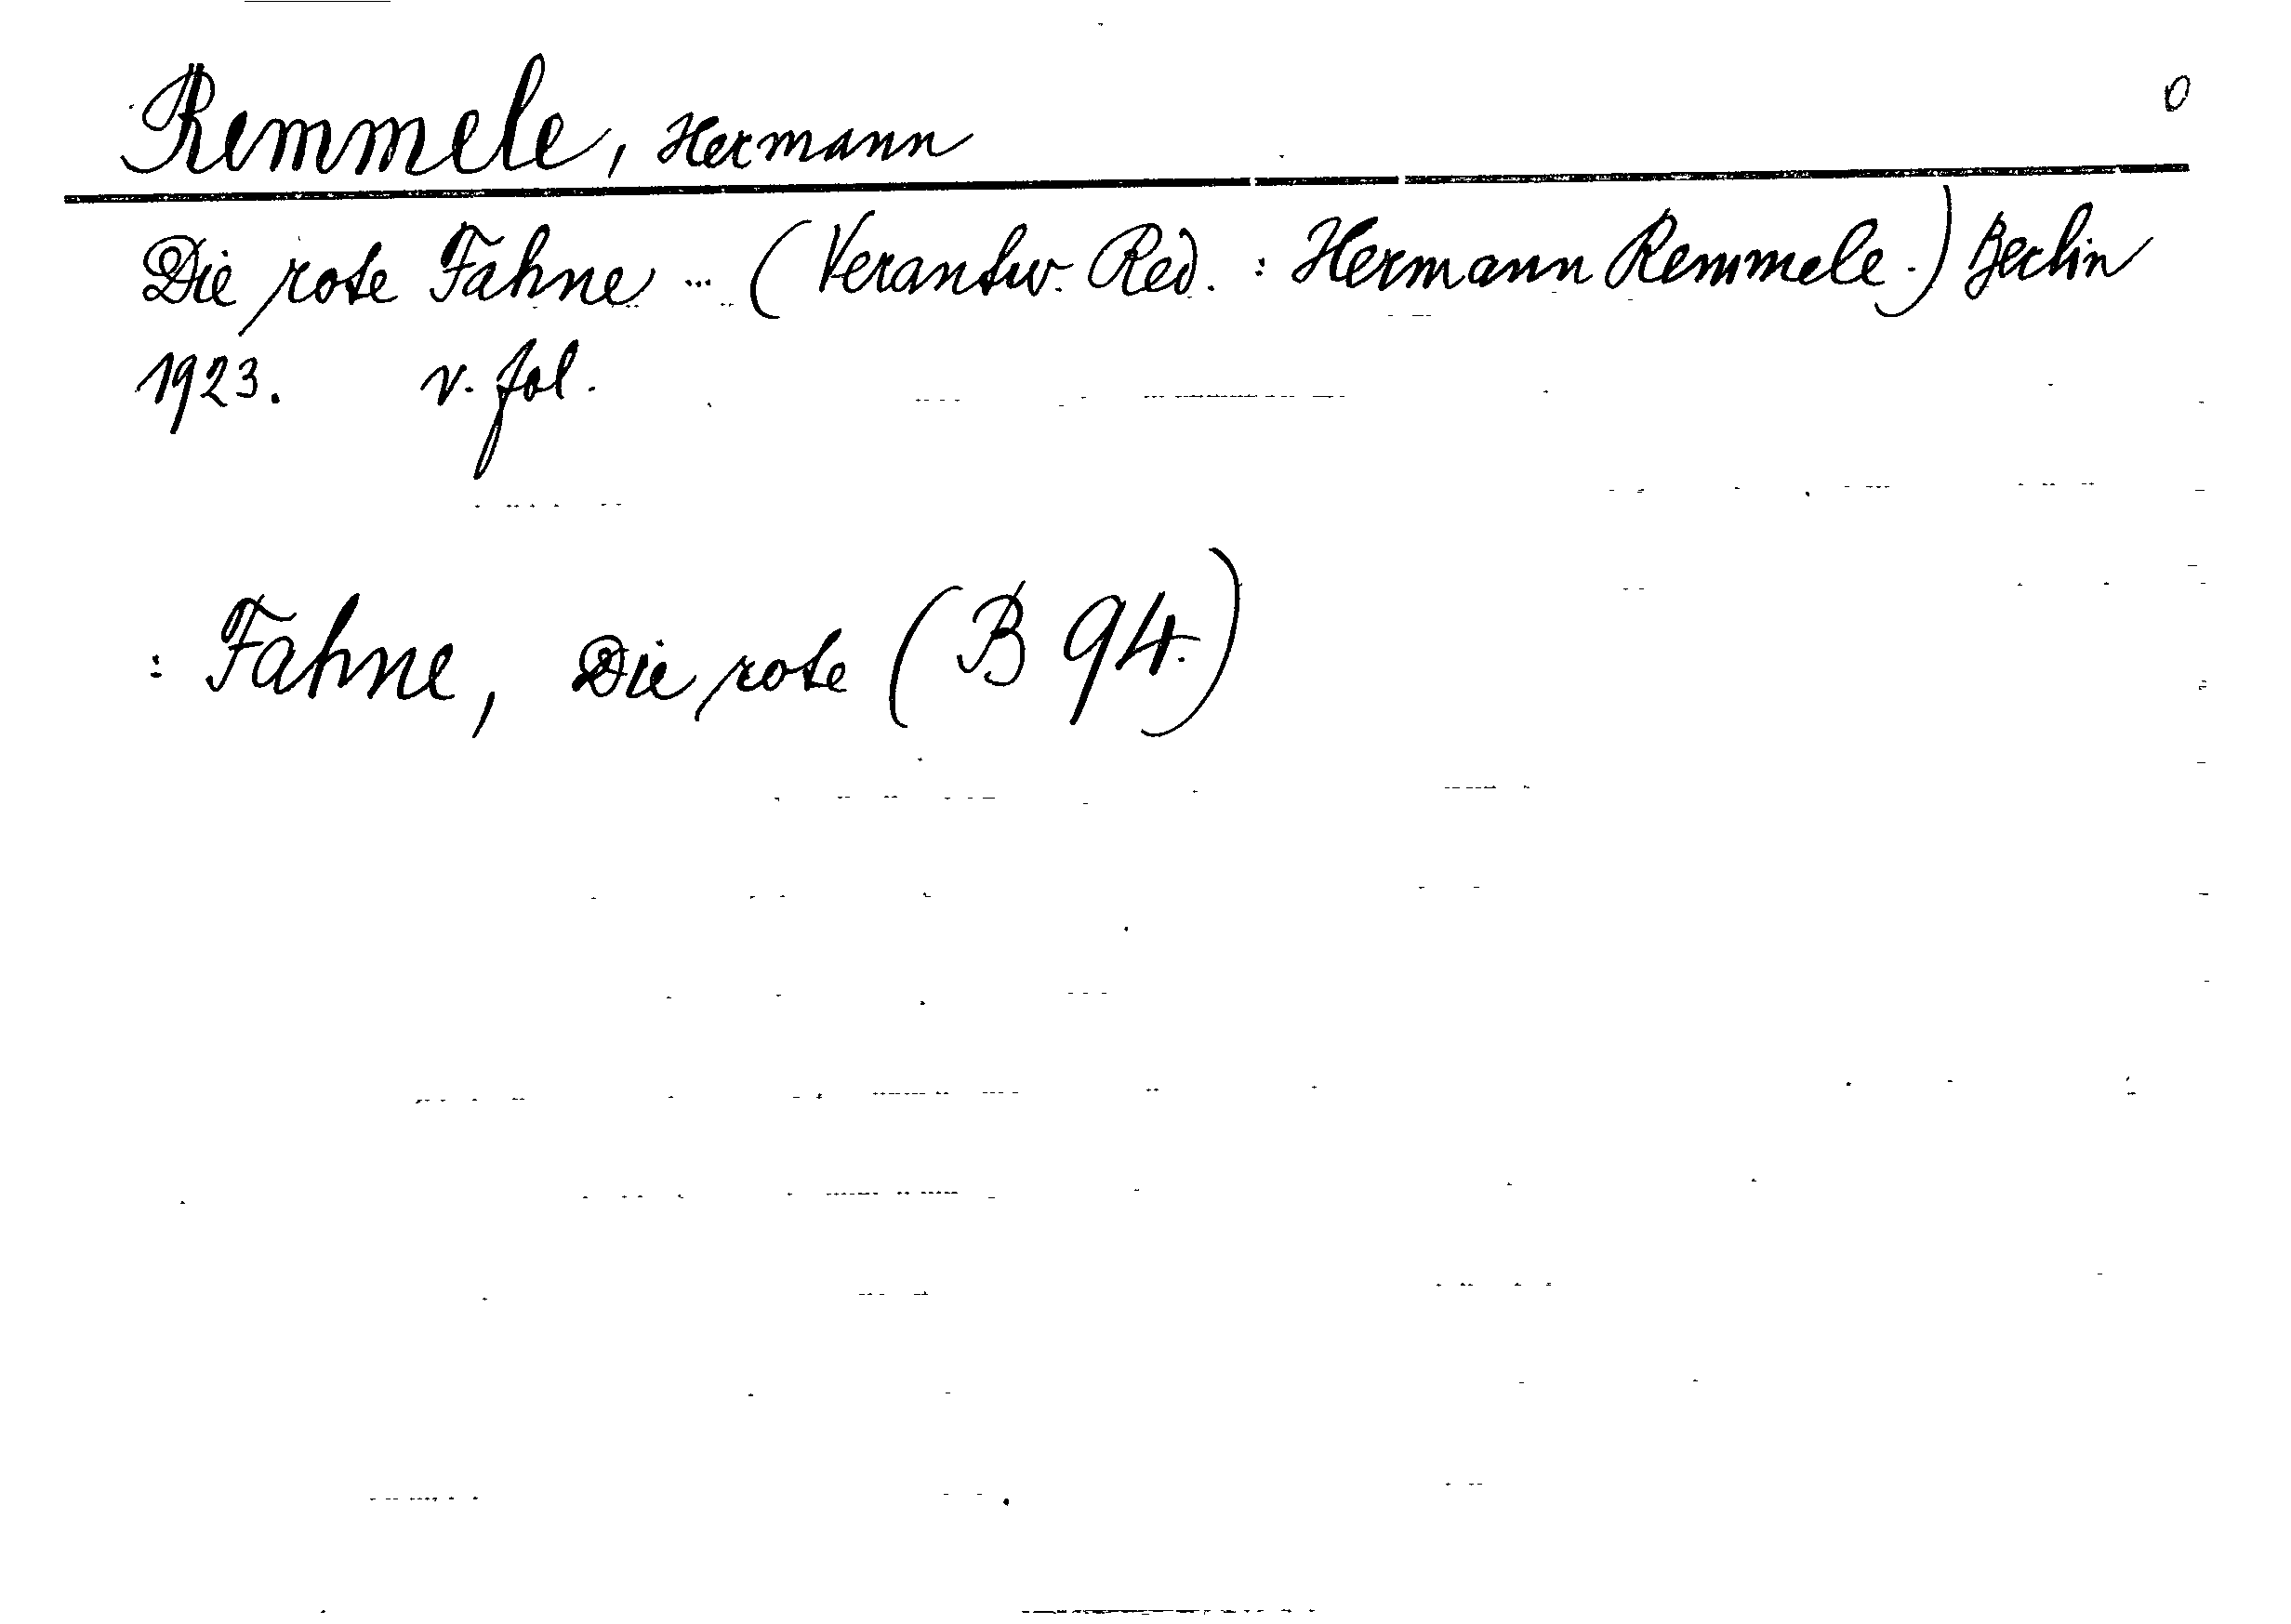 Remmele, Hermann 0
Die rote Fahne ... (Verantw. Red. : Hermann Remmele.) Berlin
1923. v. fol.
: Fahne, Die rote (B 94.)